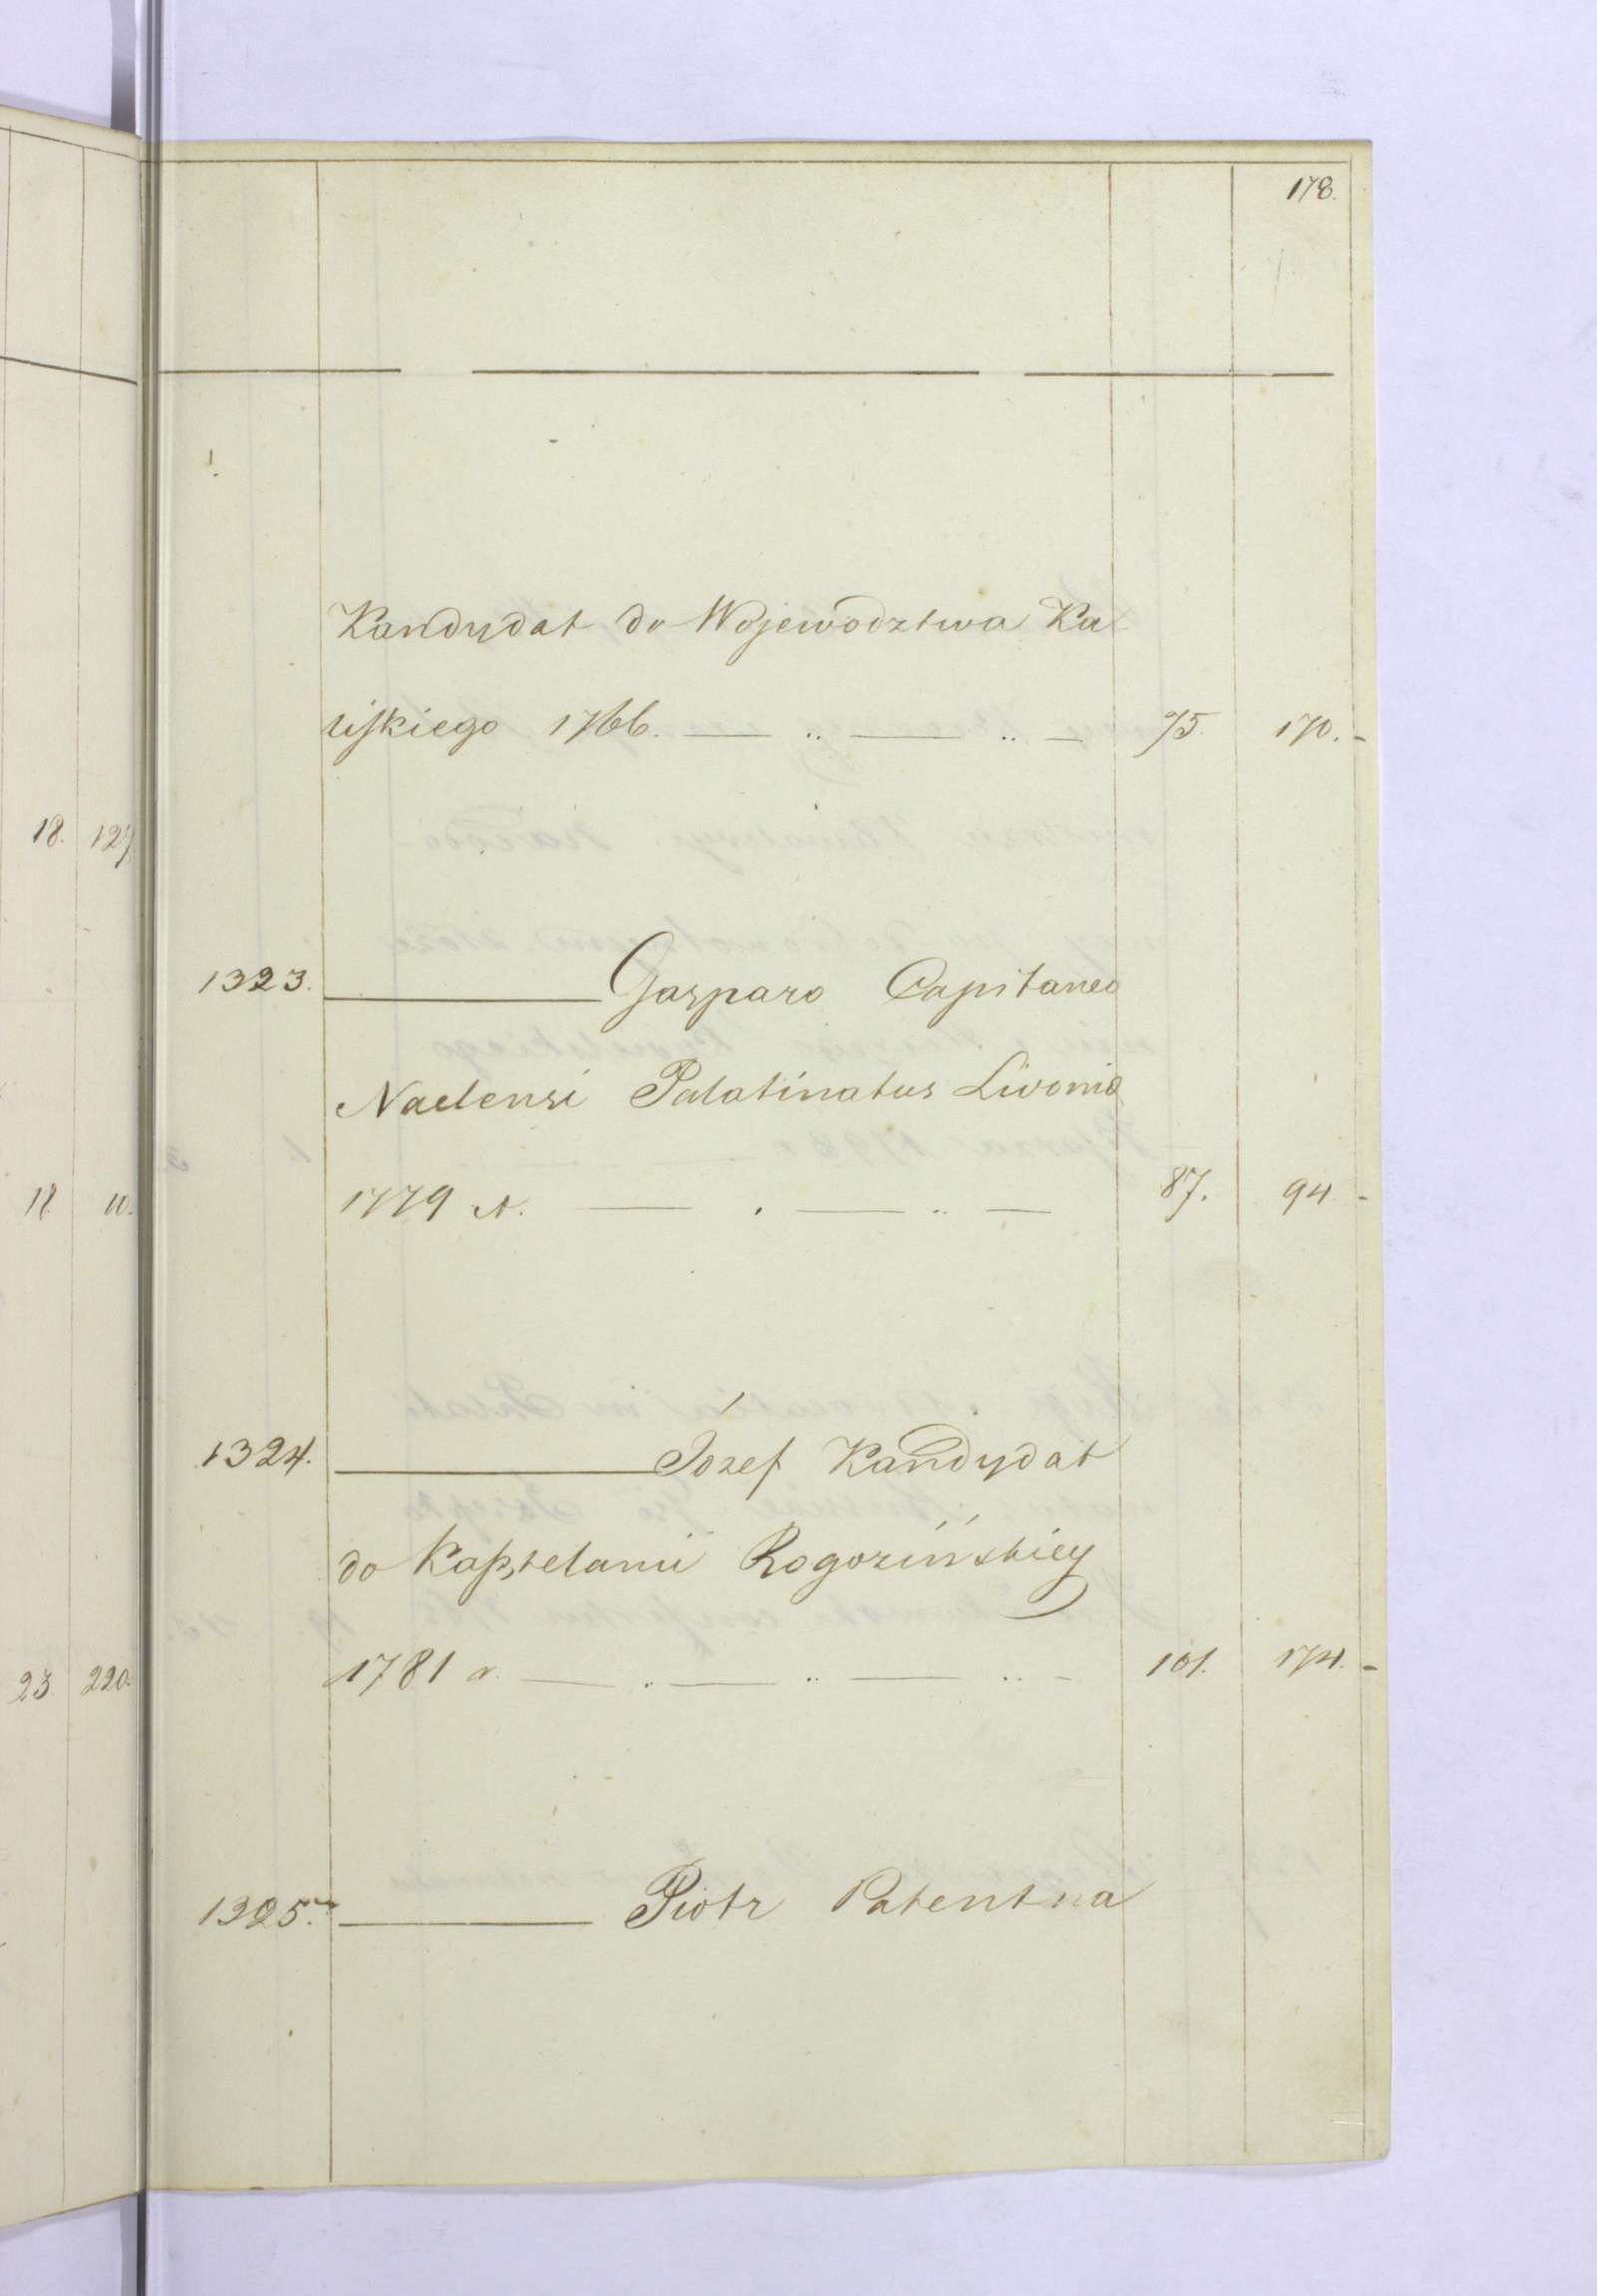 178.
Kandydat do Województwa Ka
lijskiego 1766. — .. — .. — 75. 170. -
18. 127.
1323. ——— Gasparo Capitaneo
Naelensi Palatinatus Livonia
1779 r. — . — .. — 87. 94 -
18. 10.
1324. ——— Józef Kandydat
do Kasztelanii Rogozińskiey
1781 r. — . — .. — .. - 101. 174. -
23. 220.
1325. ——— Piotr Patent na